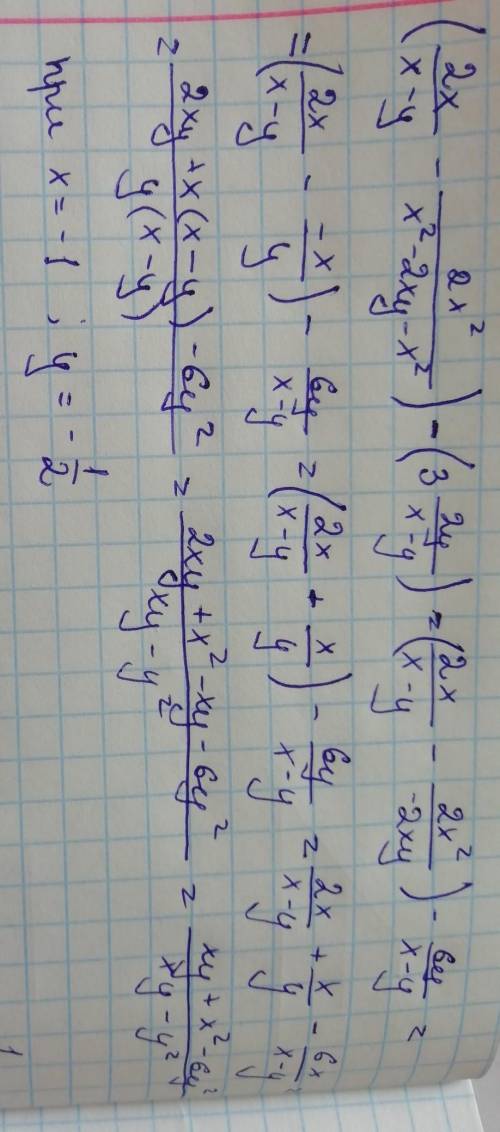 (2x/(x-y) - 2x²/(x²-2xy-x²)) - (3 2y/(x-y)) = (2x/(x-y) - 2x²/(-2xy)) - 6y/(x-y) =
= (2x/(x-y) - (-x)/y) - 6y/(x-y) = (2x/(x-y) + x/y) - 6y/(x-y) = 2x/(x-y) + x/y - 6x/(x-y)
= (2xy + x(x-y) - 6y²)/(y(x-y)) = (2xy + x² - xy - 6y²)/(xy - y²) = (xy + x² - 6y²)/(xy - y²)
при x = -1 ; y = -1/2